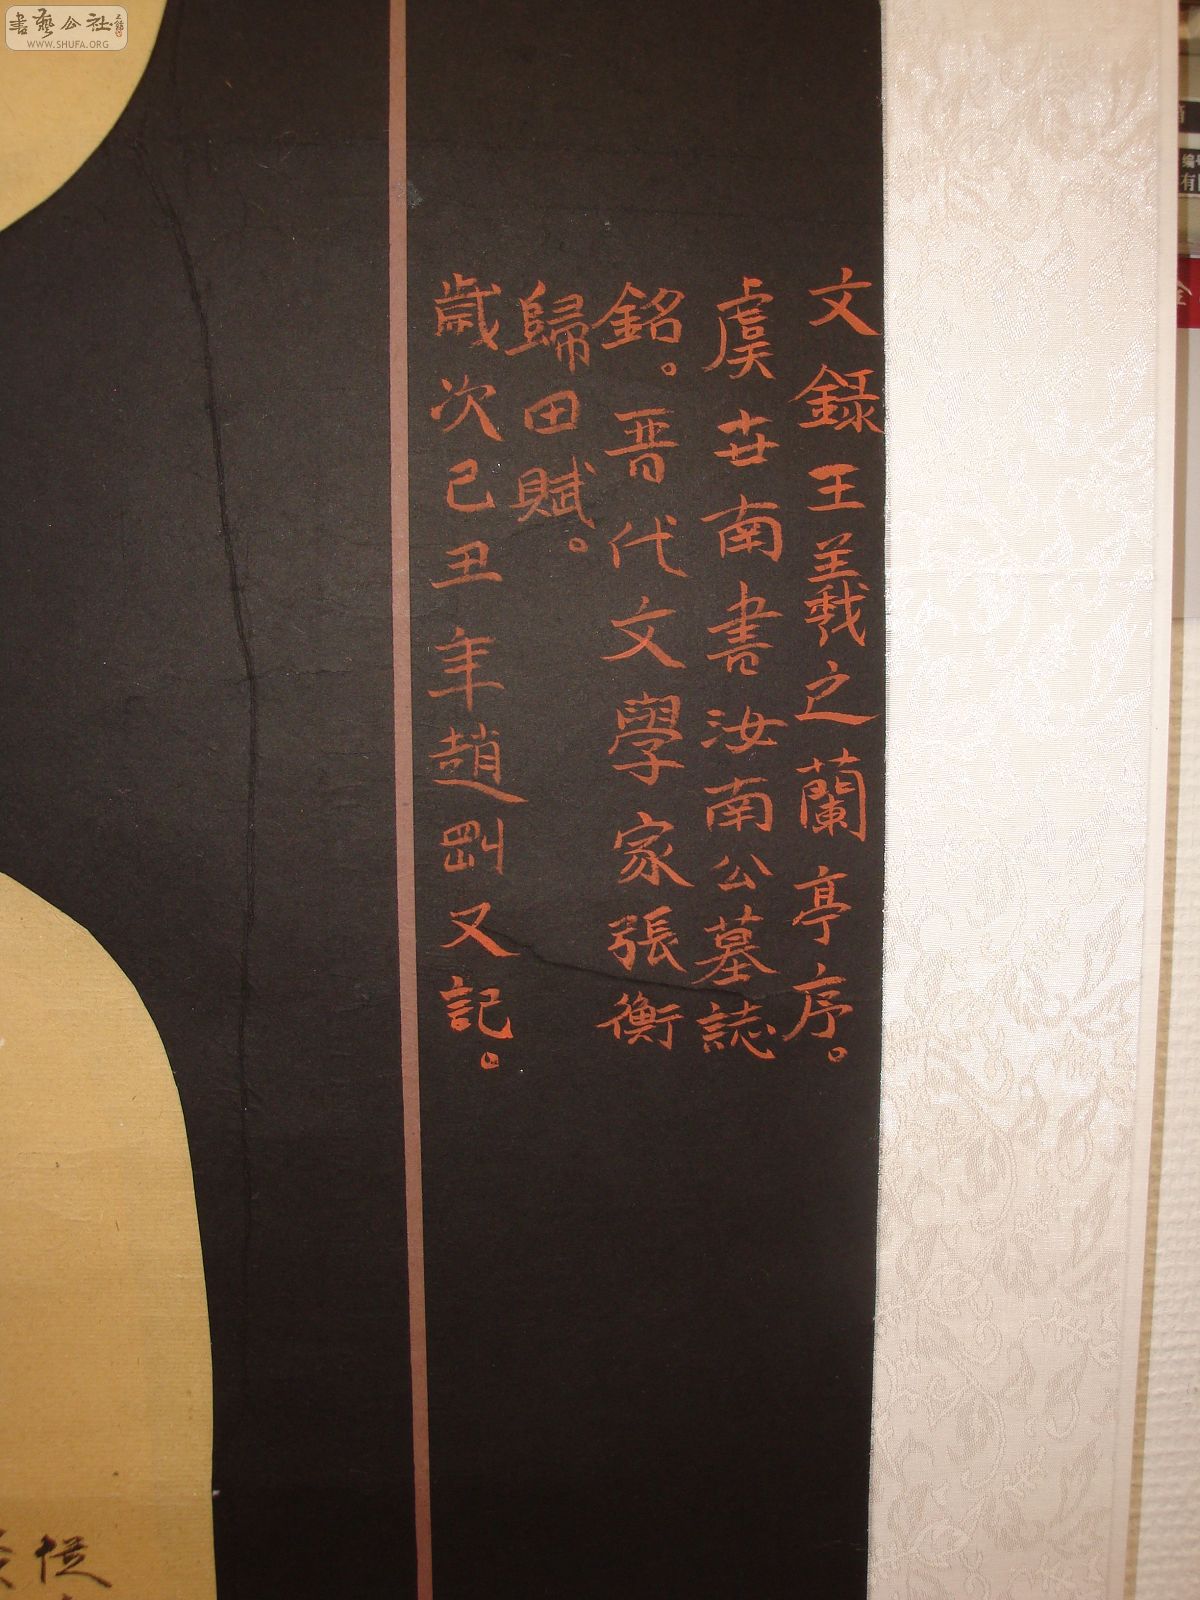 文錄王羲之蘭亭序。
虞世南書汝南公墓誌
銘。晋代文學家張衡
歸田賦。
歳次己丑年趙剛又記。
書藝公社
WWW.SHUFA.ORG
從